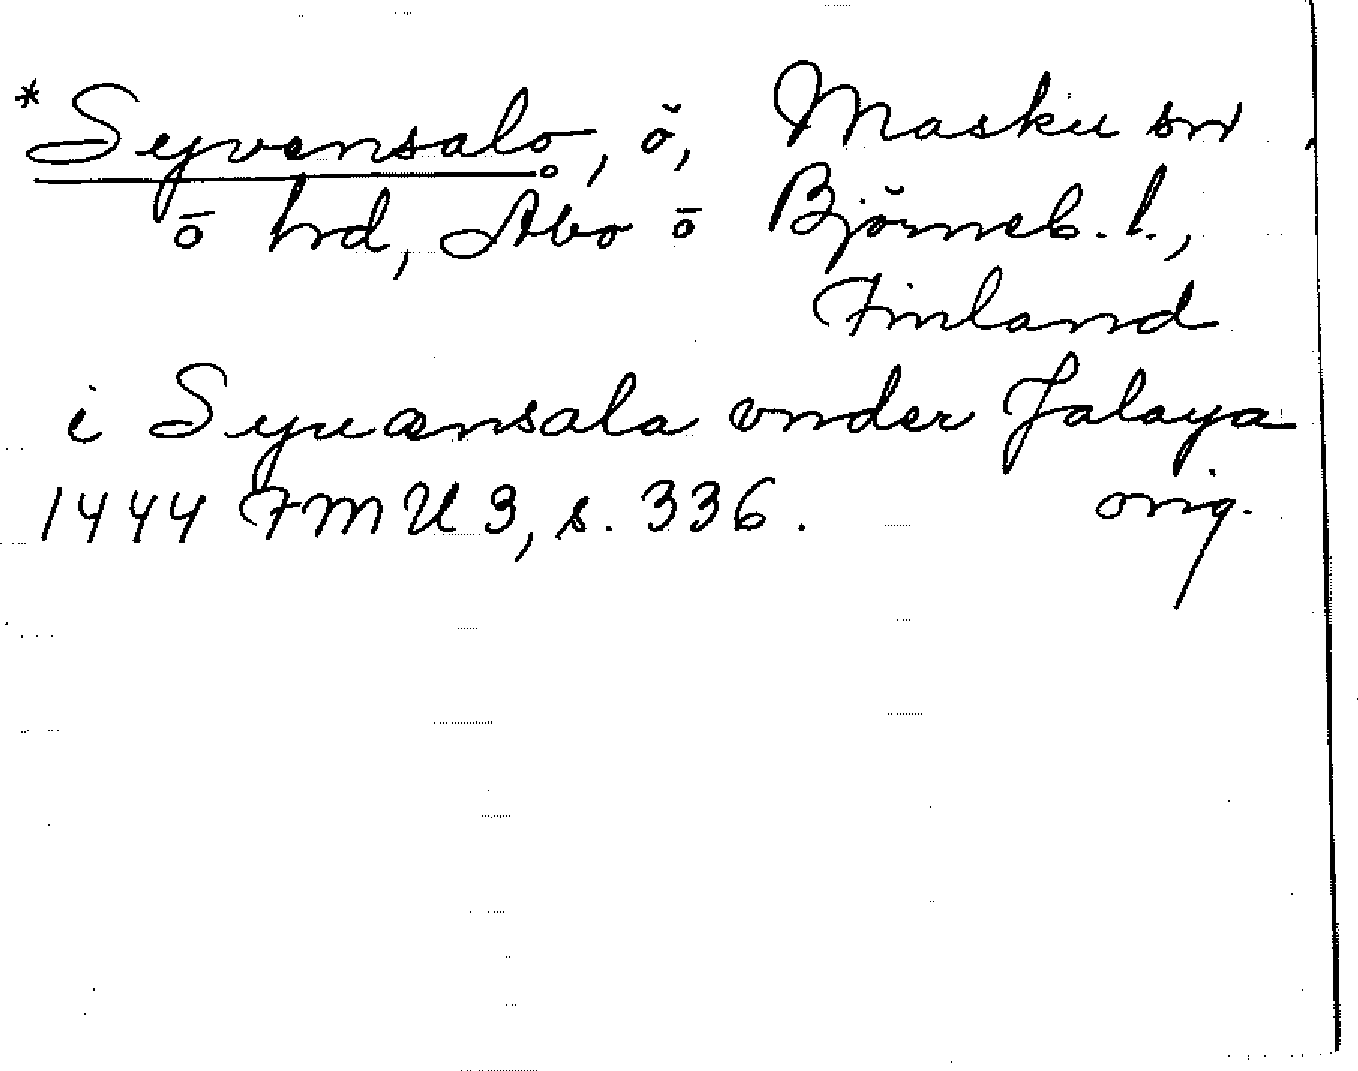 *Syvensalo, ö, Masku sn,
o hrd, Åbo o Björneb. l.,
Finland
i Syuænsala vnder Jalaya
1444 FMU 3, s. 336. orig.